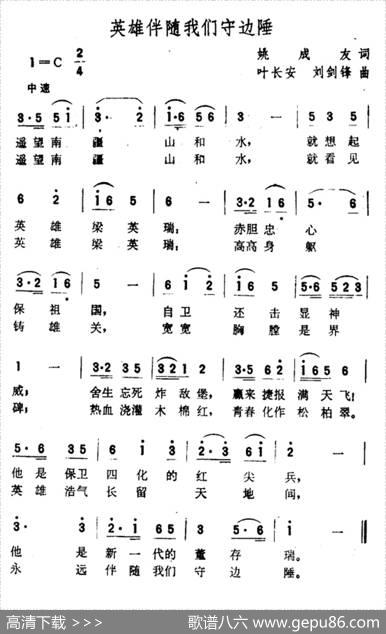 英雄伴随我们守边陲
1=C 2/4
姚成友词
中速
叶长安 刘剑锋曲
3·5 5i | 3·2i2 | i·6 56 | 3 - | 5 3 5 |
遥望南疆 山和水, 就想起
遥望南疆 山和水, 就看见
6 2 | i6 5 | 6 - | 3·2 i6 | 5· 6 |
英雄梁英瑞; 赤胆忠心
英雄梁英瑞; 高高身躯
3·2 i6 | 5 - | 6i2 | i6 5 | 5·6 523 |
保祖国, 自卫还击显神
铸雄关, 宽宽胸膛是界
1 - | 3·2 35 | i·2 35 | 3·5 235 | 2 2 |
威; 舍生忘死 炸敌堡, 赢来捷报 满天飞!
碑; 热血浇灌 木棉红, 青春化作 松柏翠。
5·6 35 | 6 i 3 | 2·3 6i | 2 - |
他是保卫四化的红尖兵,
英雄浩气长留天地间,
3· 3 | 2·i 65 | 3 5·6 | i - ‖
他是新一代的董存瑞。
永远伴随我们守边陲。
高清下载 >>>
歌谱八六 www.gepu86.com